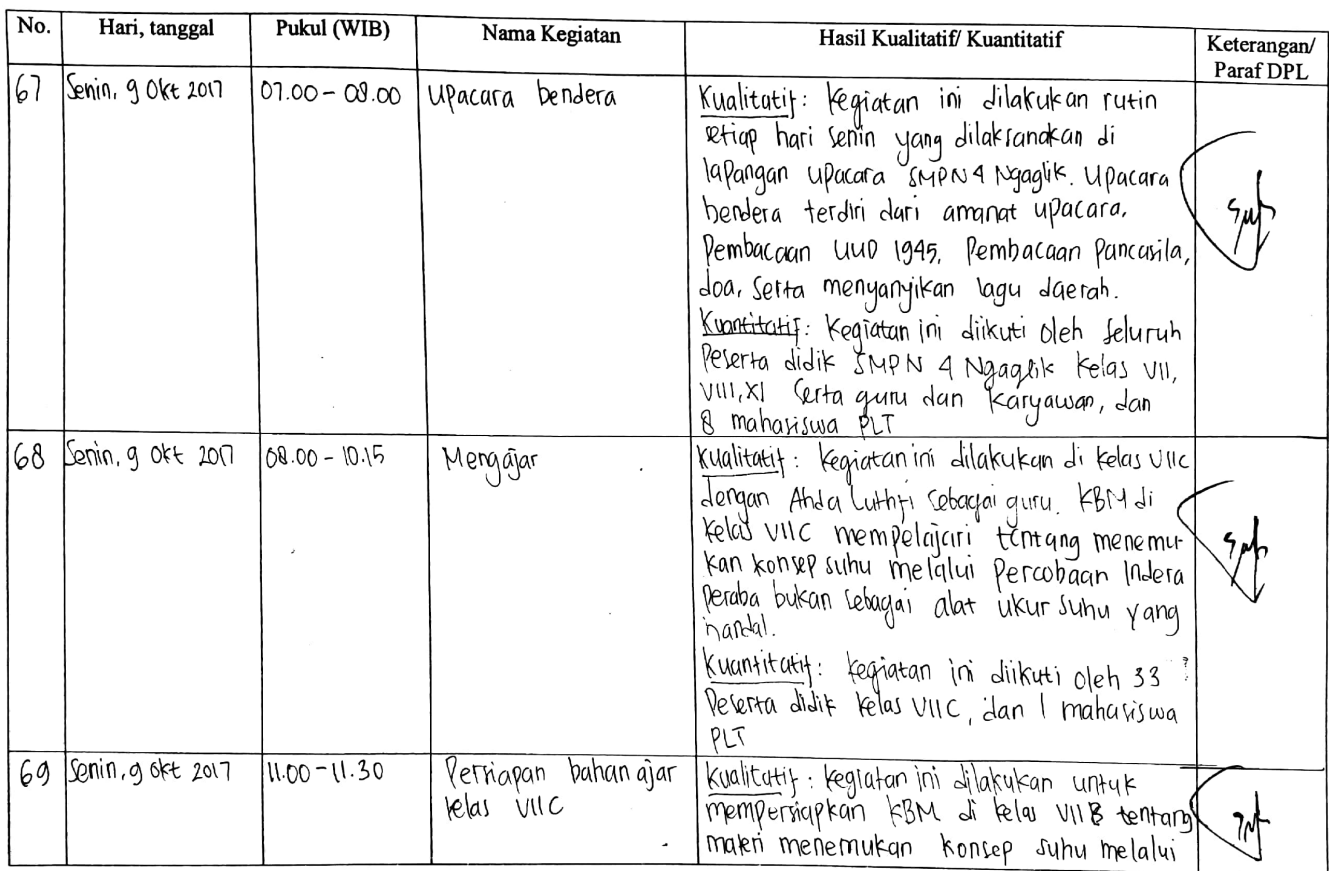 No. Hari, tanggal Pukul (WIB) Nama Kegiatan Hasil Kualitatif/ Kuantitatif Keterangan/
Paraf DPL
67 Senin, 9 Okt 2017 07.00 - 08.00 Upacara bendera Kualitatif: Kegiatan ini dilakukan rutin
setiap hari senin yang dilaksanakan di
lapangan upacara SMPN 4 Ngaglik. Upacara
bendera terdiri dari amanat upacara,
Pembacaan UUD 1945, Pembacaan Pancasila,
doa, serta menyanyikan lagu daerah.
Kuantitatif: Kegiatan ini diikuti oleh seluruh
Peserta didik SMPN 4 Ngaglik Kelas VII,
VIII, XI Serta guru dan Karyawan, dan
8 mahasiswa PLT
68 Senin, 9 Okt 2017 08.00 - 10.15 Mengajar Kualitatif: Kegiatan ini dilakukan di Kelas VIIC
dengan Ahda Luthfi sebagai guru. KBM di
Kelas VIIC mempelajari tentang menemu-
kan konsep suhu melalui Percobaan Indera
Peraba bukan sebagai alat ukur suhu yang
handal.
Kuantitatif: Kegiatan ini diikuti oleh 33
Peserta didik Kelas VIIC, dan 1 mahasiswa
PLT
69 Senin, 9 Okt 2017 11.00 - 11.30 Persiapan bahan ajar Kualitatif: Kegiatan ini dilakukan untuk
kelas VIIC mempersiapkan KBM di kelas VIIB tentang
materi menemukan konsep suhu melalui